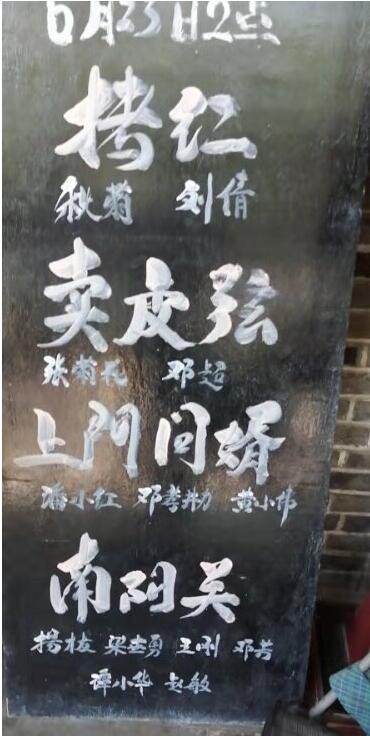 6月23日2点
拷红
秋菊 刘倩
卖皮弦
张菊花 邓超
上门问婿
潘小红 邓孝勋 黄小伟
南阳关
杨枝 梁志勇 王刚 邓芳
谭小华 赵敏